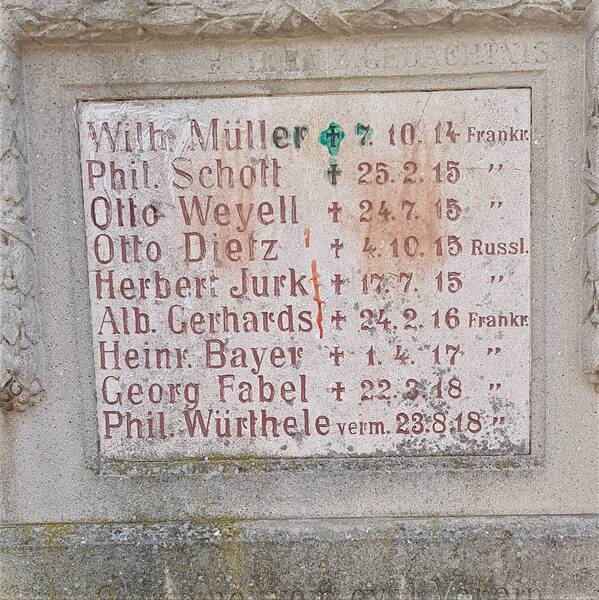 GEDÄCHTNIS
Wilh. Müller ✝ 7. 10. 14 Frankr.
Phil. Schott ✝ 25. 2. 15 〃
Otto Weyell ✝ 24. 7. 15 〃
Otto Dietz ✝ 4. 10. 15 Russl.
Herbert Jurk ✝ 17. 7. 15 〃
Alb. Gerhards ✝ 24. 2. 16 Frankr.
Heinr. Bayer ✝ 1. 4. 17 〃
Georg Fabel ✝ 22. 3 18 〃
Phil. Würthele verm. 23.8 18 〃